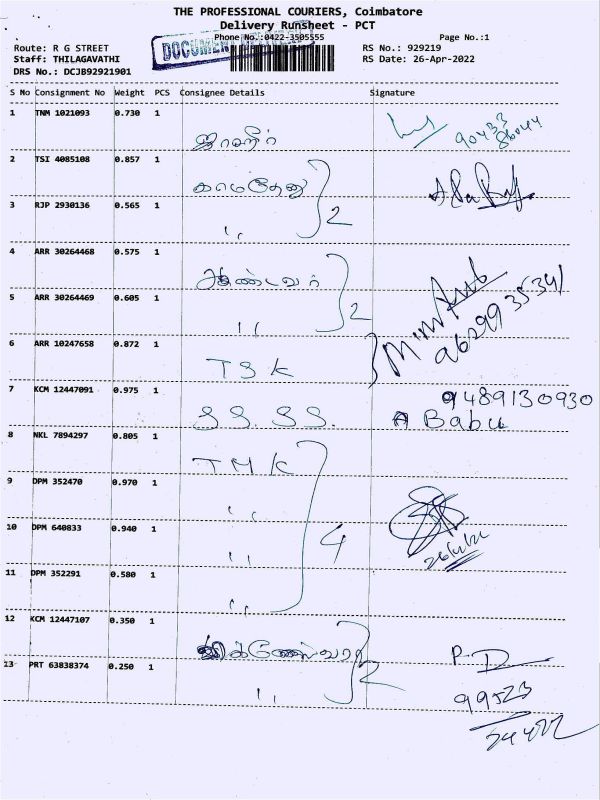 THE PROFESSIONAL COURIERS, Coimbatore
Delivery Runsheet - PCT
Phone No.:0422-3505555
Page No.:1
Route: R G STREET
RS No.: 929219
Staff: THILAGAVATHI
RS Date: 26-Apr-2022
DRS No.: DCJB92921901
DOCUMENT
S No Consignment No Weight PCS Consignee Details Signature
1 TNM 1021093 0.730 1
90433
86044
2 TSI 4085108 0.857 1 காமதேனு
3 RJP 2930136 0.565 1 ,, 2
4 ARR 30264468 0.575 1
5 ARR 30264469 0.605 1 ,, 2
6 ARR 10247658 0.872 1 TSK
7 KCM 12447091 0.975 1 SS. SS. 9489130930
A Babu
8 NKL 7894297 0.805 1 TMK
9 DPM 352470 0.970 1 ,,
10 DPM 640833 0.940 1 ,, 4
11 DPM 352291 0.580 1 ,,
12 KCM 12447107 0.350 1
13 PRT 63838374 0.250 1 ,, 2
99523